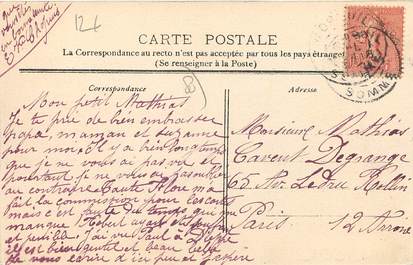 12€
CARTE POSTALE
La Correspondance au recto n'est pas acceptée par tous les pays étrangers
(Se renseigner à la Poste)
Correspondance
Adresse
SOMME
Mon petit Mathias
Je te prie de bien embrasser
papa, maman et suzanne
pour moi. Il y a bien longtemps
que je ne vous ai pas vu et
pourtant je ne vous ai pas oublié
au contraire tante Flore m'a
fait la commission pour les cartes
mais c'est faute du temps que
manque Robert
et J'ai vu Paul à Dieppe
il est bien gentil et beau bébé
vous écrire d'ici peu et j'espère
que
vous
Monsieur Mathias
Cavent Degrange
65. Av. Ledru Rollin
Paris 12 Arron